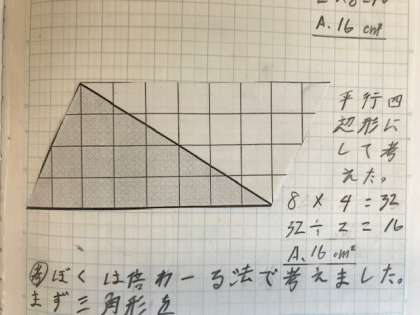 A. 16 cm²
平行四
辺形に
して考
えた。
8 × 4 = 32
32 ÷ 2 = 16
A. 16 cm²
考 ぼくは倍わーる法で考えました。
まず三角形を